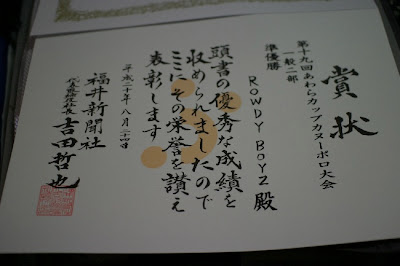 賞状
第十九回あわらカップカヌーポロ大会
一般二部
準優勝
ROWDY BOYZ 殿
頭書の優秀な成績を
収められましたので
ここにその栄誉を讃え
表彰します
平成二十年八月二十四日
福井新聞社
代表取締役社長 吉田哲也